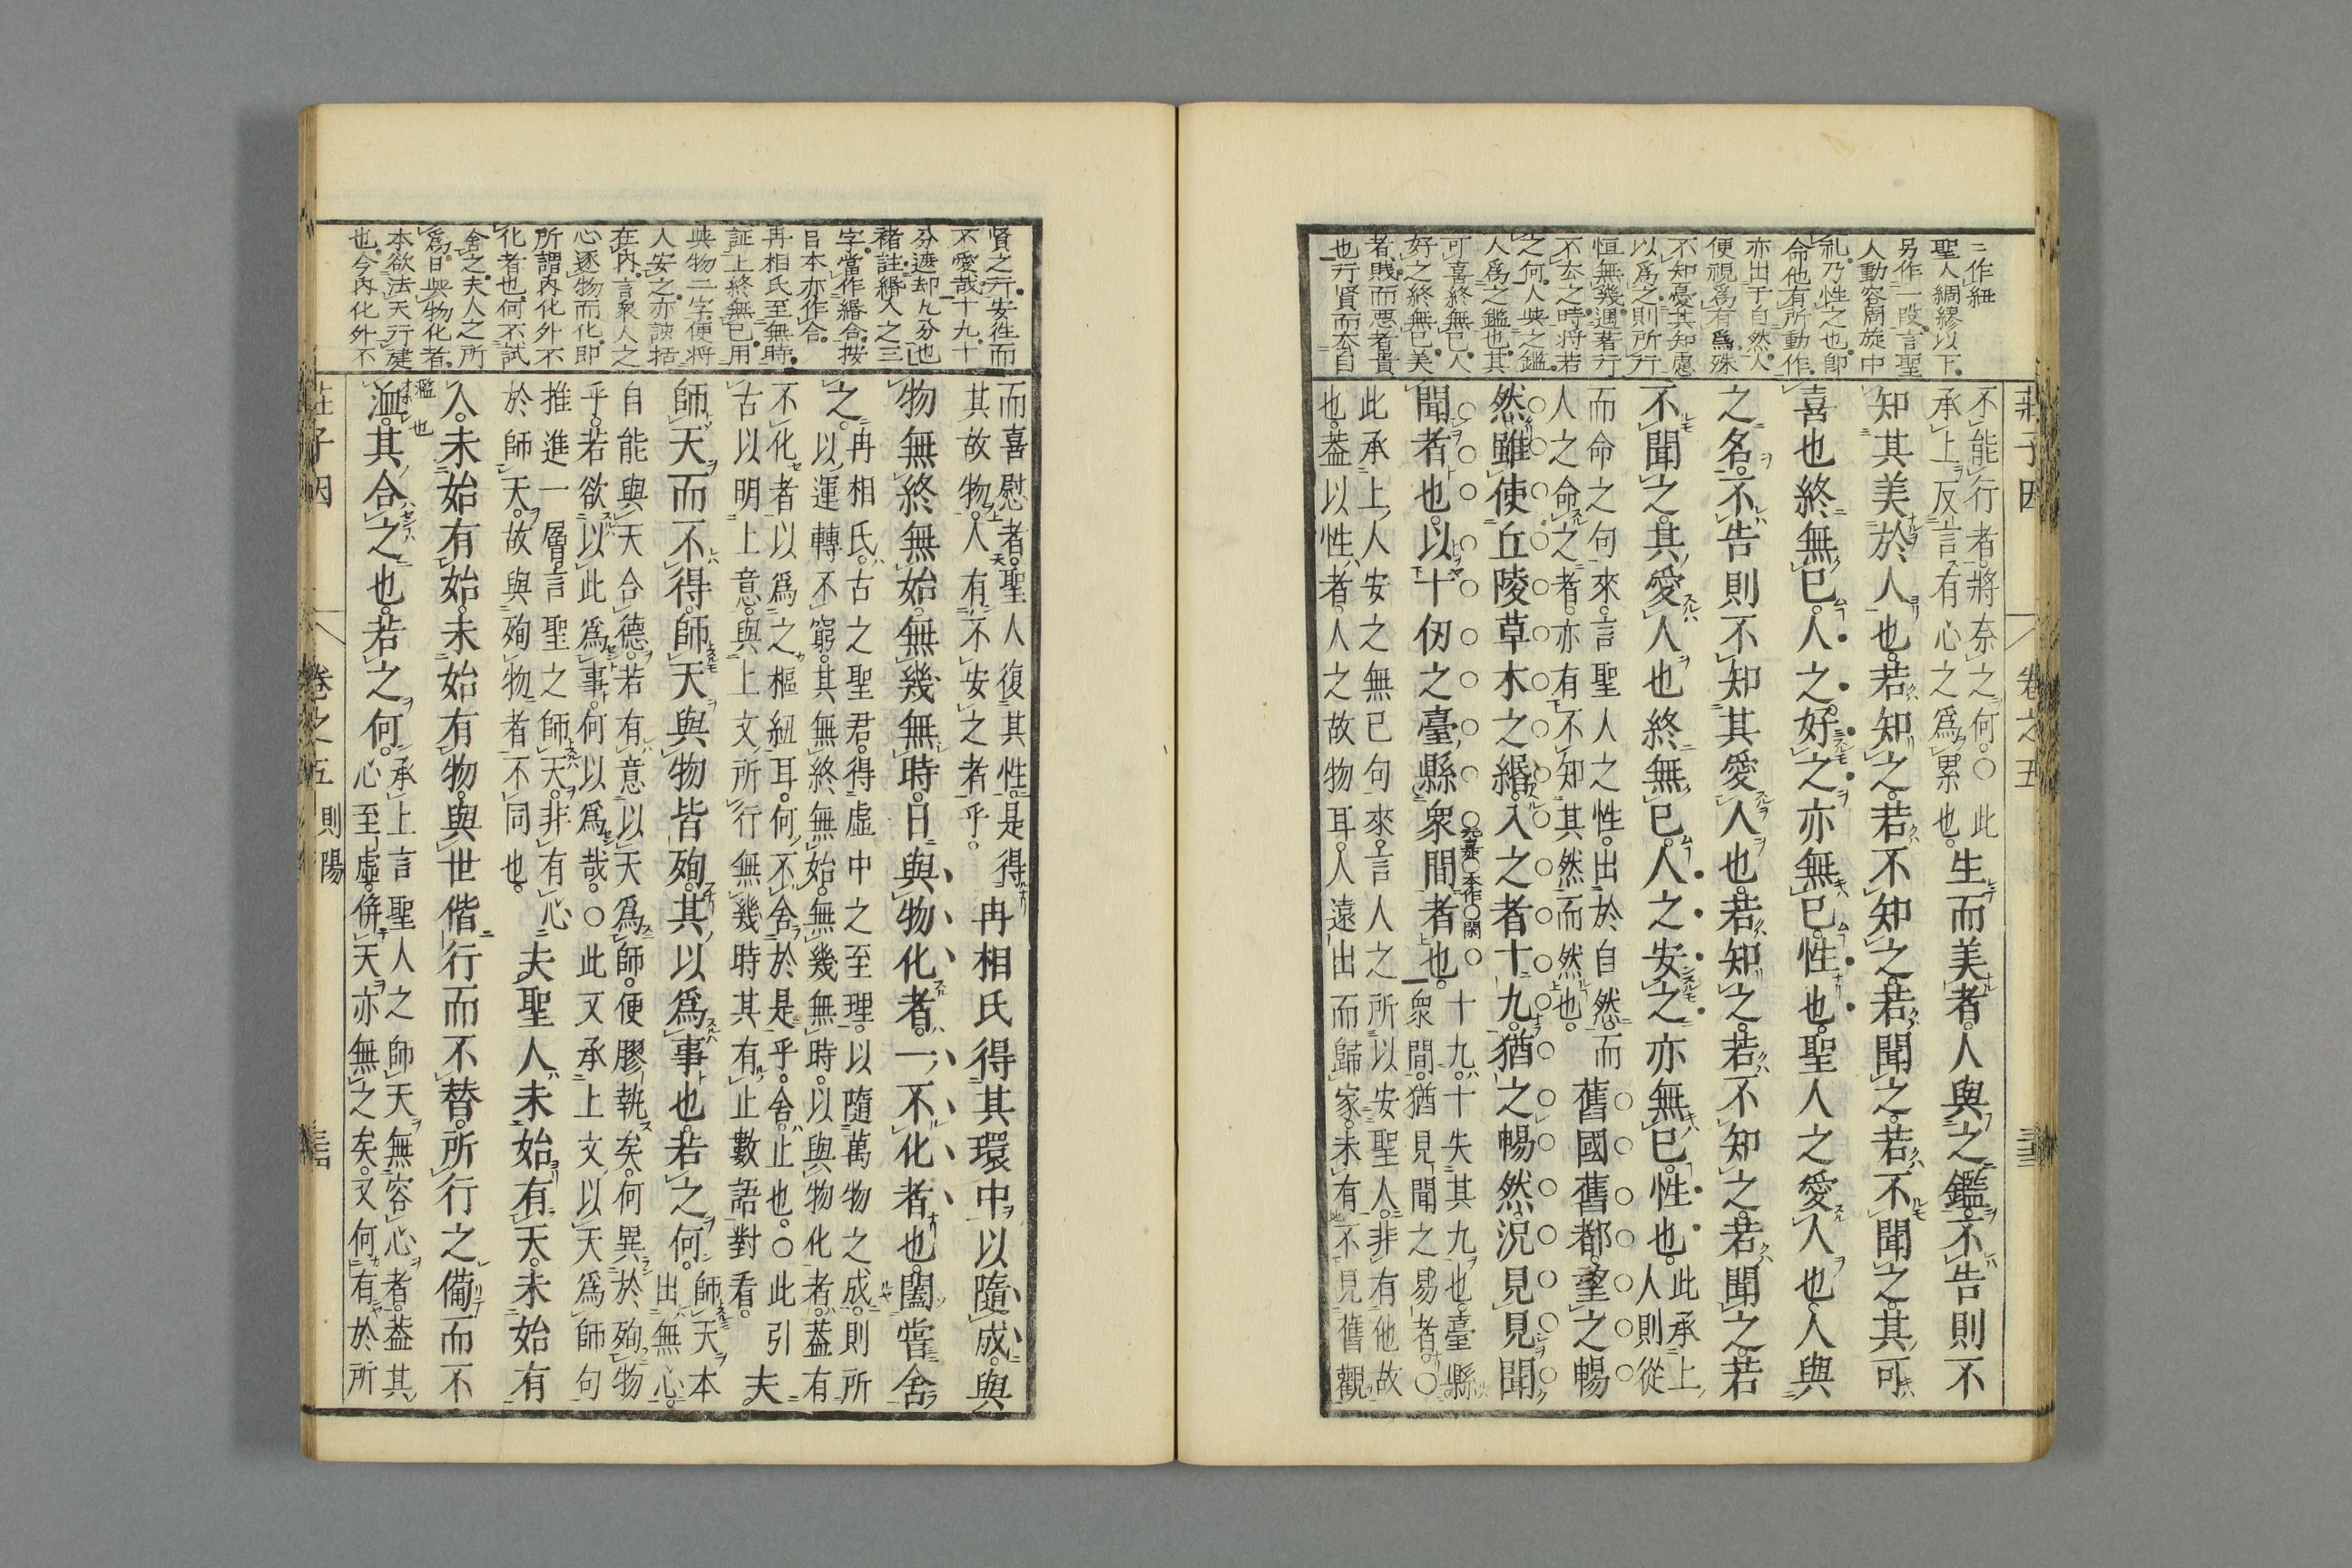 莊子因　卷之五　三三
ニ作紐
聖人綢繆以下
另作一段言聖
人動容周旋中
礼乃性之也即
命他有所動作
亦出于自然人
便視爲有爲殊
不知憂其知慮
以爲之則所行
恒無幾遇著行
不去之時将若
之何人與之鑑
人爲之鑑也其
可喜終無已人
好之終無已美
者賤而悪者貴
也行賢而去自
不能行者。將奈之何。○此
承上反言有心之爲累也。
生而美者。人與之鑑。不告則不
知其美於人也。若知之。若不知之。若聞之。若不聞之。其可
喜也終無已。人之好之亦無已。性也。聖人之愛人也。人與
之名。不告則不知其愛人也。若知之。若不知之。若聞之。若
不聞之。其愛人也終無已。人之安之亦無已。性也。
此承上
人則從
而命之句來。言聖人之性。出於自然。而
人之命之者。亦有不知其然而然也。
舊國舊都。望之暢
然。雖使丘陵草木之緡。入之者十九。猶之暢然。況見見聞
聞者也。以十仞之臺。縣衆間者也。
十九。十失其九也。臺縣
衆間。猶見聞之易者。○
此承上人安之無已句來。言人之所以安聖人。非有他故
也。葢以性者。人之故物耳。人遠出而歸家。未有不見舊觀
賢之行安往而
不愛哉十九十
分遮却九分也
褚註緡入之三
字當作緡合按
日本亦作合
冉相氏至無時
証上終無已用
與物二字便將
人安之亦該括
在内言衆人之
心逐物而化即
所謂内化外不
化者也何不試
舍之夫人之所
爲日與物化者
本欲法天行健
也今内化外不
而喜慰者。聖人復其性。是得
其故物。人有不安之者乎。
冉相氏得其環中以隨成。與
物無終無始。無幾無時。日與物化者。一不化者也。闔嘗舍
之。
冉相氏。古之聖君。得虛中之至理。以隨萬物之成。則所
以運轉不窮。其無終無始。無幾無時。以與物化者。葢有
不化者以爲之樞紐耳。何不舍於是乎。舍。止也。○此引
古以明上意。與上文所行無幾時其有止數語對看。
夫
師天而不得。師天與物皆殉。其以爲事也。若之何。
師天本
出無心。
自能與天合德。若有意以天爲師。便膠執矣。何異於殉物
乎。若欲以此爲事。何以爲哉。○此又承上文。以天爲師句
推進一層。言聖之師天。非有心
於師天。故與殉物者不同也。
夫聖人未始有天。未始有
人。未始有始。未始有物。與世偕行而不替。所行之備而不
洫。其合之也。若之何。
承上言聖人之師天無容心者。葢其
心至虛。倂天亦無之矣。又何有於所
莊子因　卷之五　則陽　三四